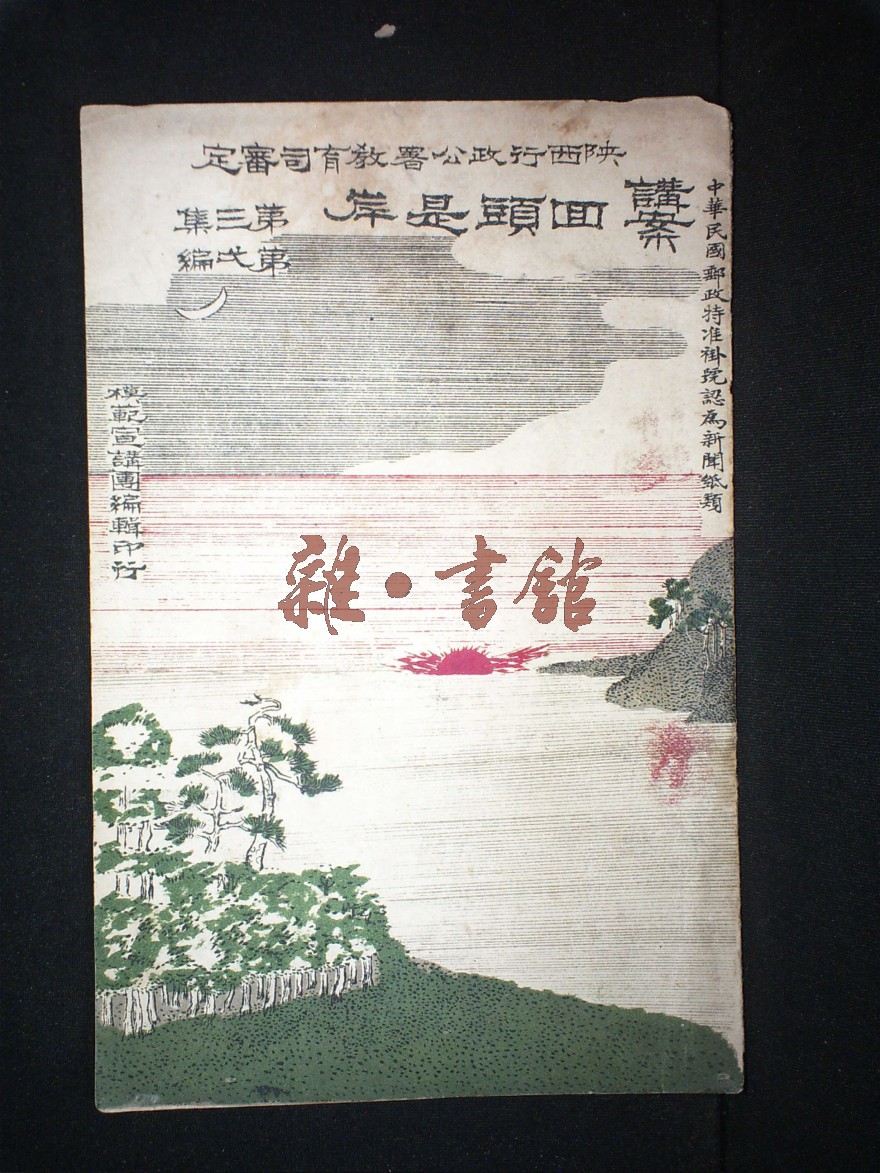 陝西行政公署教育司審定
中華民國郵政特准掛號認為新聞紙類
講案
回頭是岸
第三集
第弌編
模範宣講團編輯印行
雜·書館